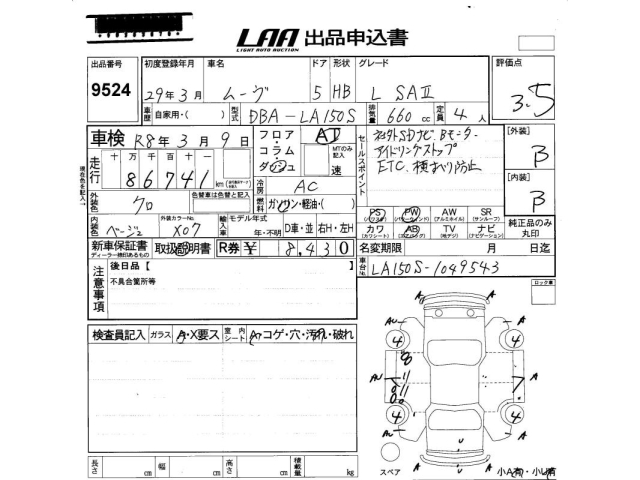 LAA 出品申込書
LIGHT AUTO AUCTION
出品番号 初度登録年月 車名 ドア 形状 グレード 評価点
9524 29年3月 ムーヴ 5 HB L SAⅡ 3.5
車歴 自家用・( ) 型式 DBA-LA150S 排気量 660 cc 定員 4 人
車検 R8年3月9日 フロア・コラム・ダッシュ AT セールスポイント
ネオタSDナビ Bモニター
アイドリングストップ
ETC 横すべり防止
MTのみ記入 速
[外装] B
[内装] B
走行 十 万 千 百 十 一
86741 km
冷房 AC
外装色 クロ 色替車は色替と記入 燃料 ガソリン・軽油・( )
内装色 ベージュ 外装カラーNo. X07 輸入車 モデル年式 年・不明 D車・並 右H・左H
PS PW AW SR
(パワステ) (パワーウィンド) (アルミホイール) (サンルーフ)
カワ AB TV ナビ
(カワシート) (エアバッグ) (地デジ) (ナビゲーション)
純正品のみ丸印
新車保証書 取扱説明書 R券 ¥ 8,430 名変期限 月 日迄
ディーラー捺印あるもの
車台No. LA150S-1049543
注意事項 後日品【 】
不具合箇所等
ロック車
検査員記入 ガラス A・X要ス 室内シート A・コゲ・穴・汚れ・破れ
AU A
4 4
8
AU A
4 4
A A
U
スペア A A
長さ cm 幅 cm 高さ cm 積載量 kg
小A有・小U有